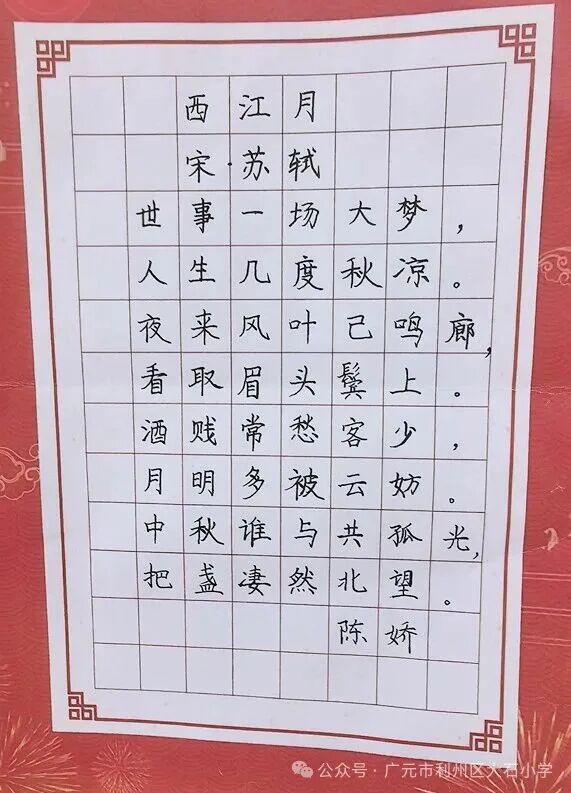 西江月
宋·苏轼
世事一场大梦，
人生几度秋凉。
夜来风叶己鸣廊，
看取眉头鬓上。
酒贱常愁客少，
月明多被云妨。
中秋谁与共孤光，
把盏凄然北望。
陈娇
公众号·广元市利州区大石小学